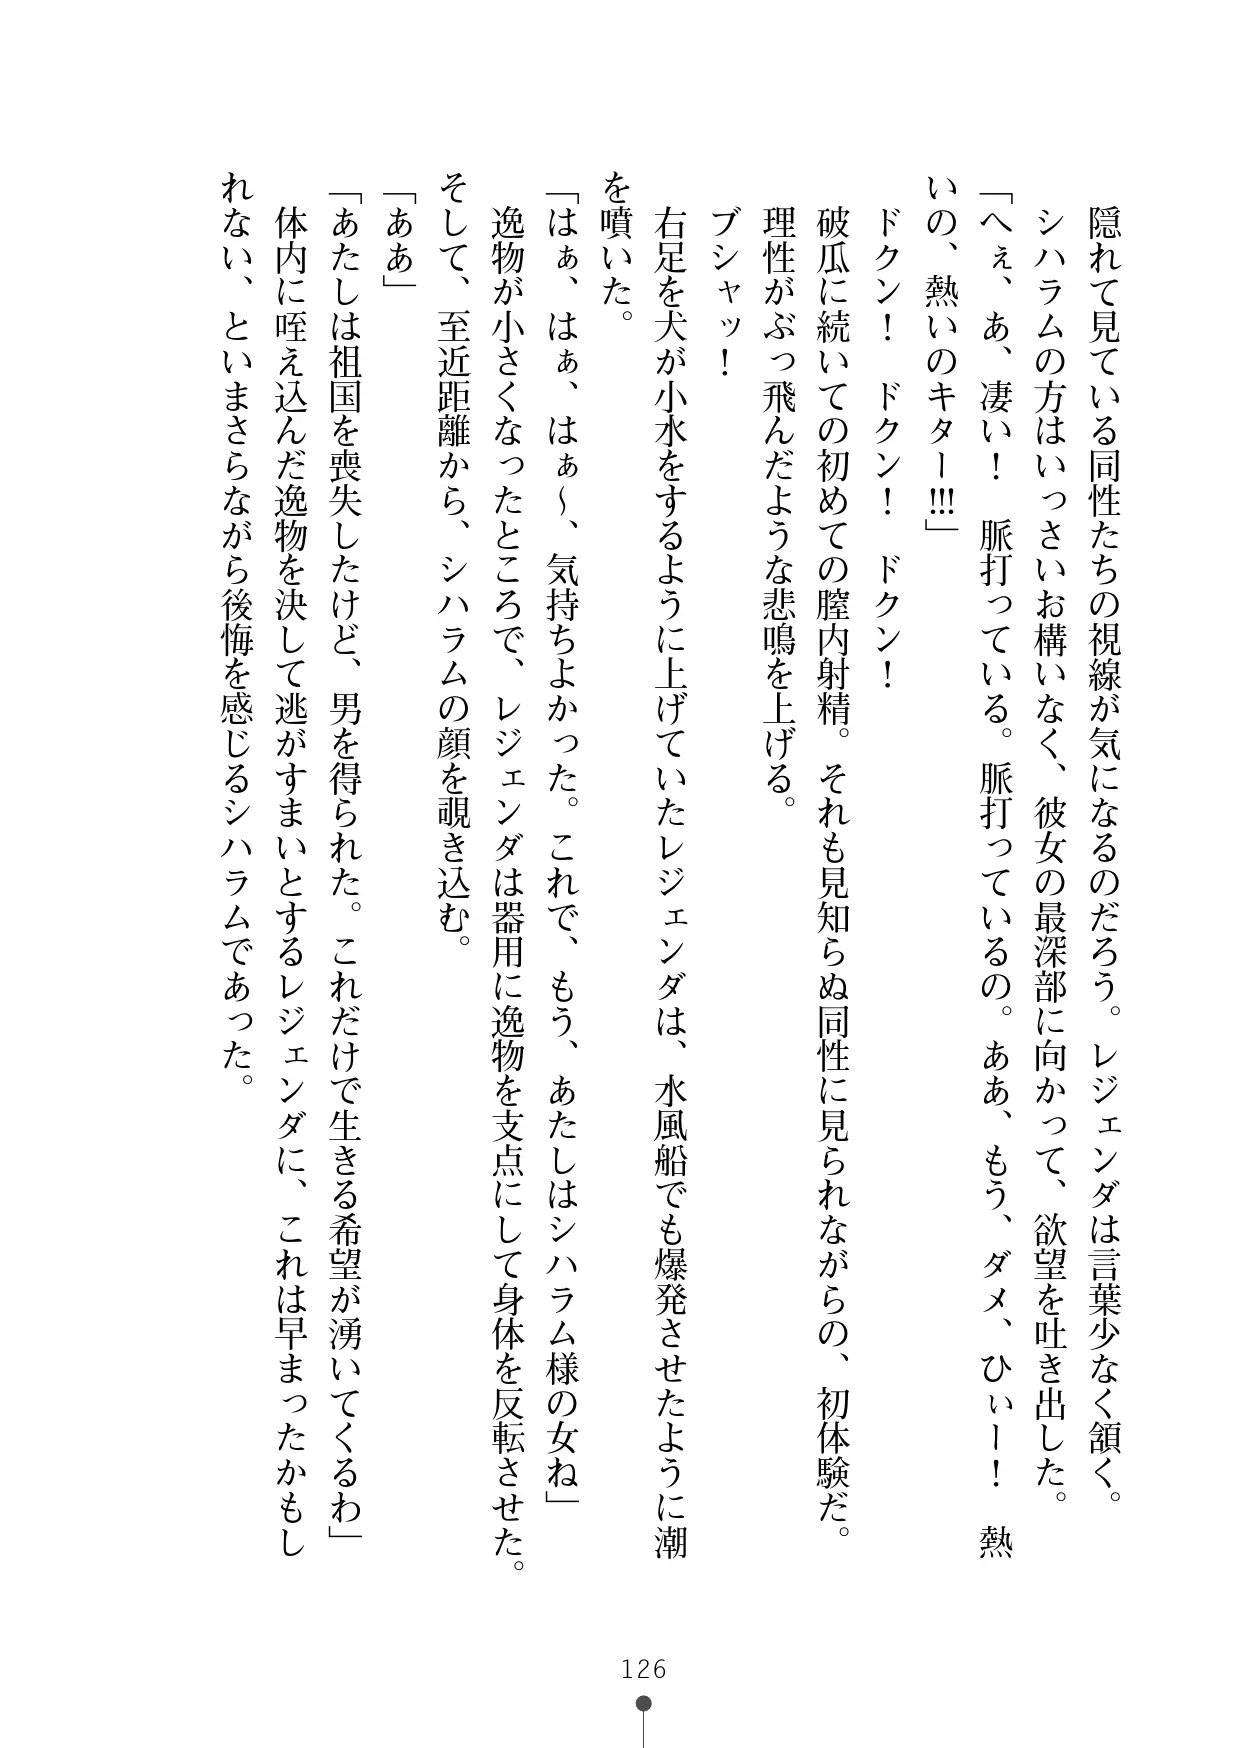 隠れて見ている同性たちの視線が気になるのだろう。レジェンダは言葉少なく頷く。
シハラムの方はいっさいお構いなく、彼女の最深部に向かって、欲望を吐き出した。
「へぇ、あ、凄い！　脈打っている。脈打っているの。ああ、もう、ダメ、ひぃー！　熱
いの、熱いのキター!!!」
ドクン！　ドクン！　ドクン！
破瓜に続いての初めての膣内射精。それも見知らぬ同性に見られながらの、初体験だ。
理性がぶっ飛んだような悲鳴を上げる。
ブシャッ！
右足を犬が小水をするように上げていたレジェンダは、水風船でも爆発させたように潮
を噴いた。
「はぁ、はぁ、はぁ～、気持ちよかった。これで、もう、あたしはシハラム様の女ね」
逸物が小さくなったところで、レジェンダは器用に逸物を支点にして身体を反転させた。
そして、至近距離から、シハラムの顔を覗き込む。
「ああ」
「あたしは祖国を喪失したけど、男を得られた。これだけで生きる希望が湧いてくるわ」
体内に咥え込んだ逸物を決して逃がすまいとするレジェンダに、これは早まったかもし
れない、といまさらながら後悔を感じるシハラムであった。
126